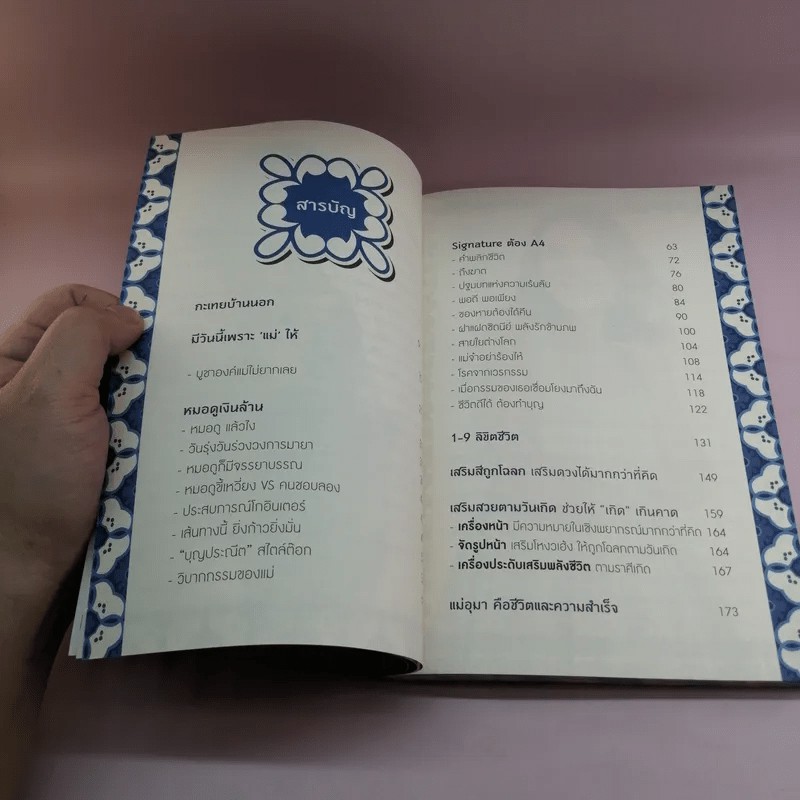 สารบัญ
กะเทยบ้านนอก
มีวันนี้เพราะ 'แม่' ให้
- บูชาองค์แม่ไม่ยากเลย
หมอดูเงินล้าน
- หมอดู แล้วไง
- วันรุ่งวันร่วงวงการมายา
- หมอดูก็มีจรรยาบรรณ
- หมอดูขี้เหวี่ยง VS คนชอบลอง
- ประสบการณ์โกอินเตอร์
- เส้นทางนี้ ยิ่งก้าวยิ่งมั่น
- "บุญประณีต" สไตล์ต๊อก
- วิบากกรรมของแม่
Signature ต้อง A4 63
- คำพลิกชีวิต 72
- ถึงฆาต 76
- ปฐมบทแห่งความเร้นลับ 80
- พอดี พอเพียง 84
- ของหายต้องได้คืน 90
- ฝาแฝดซิดนีย์ พลังรักข้ามภพ 100
- สายใยต่างโลก 104
- แม่จ๋าอย่าร้องไห้ 108
- โรคจากเวรกรรม 114
- เมื่อกรรมของเธอเชื่อมโยงมาถึงฉัน 118
- ชีวิตดีได้ ต้องทำบุญ 122
1-9 ลิขิตชีวิต 131
เสริมสีถูกโฉลก เสริมดวงได้มากกว่าที่คิด 149
เสริมสวยตามวันเกิด ช่วยให้ "เกิด" เกินคาด 159
- เครื่องหน้า มีความหมายในเชิงพยากรณ์มากกว่าที่คิด 164
- จัดรูปหน้า เสริมโหงวเฮ้ง ให้ถูกโฉลกตามวันเกิด 164
- เครื่องประดับเสริมพลังชีวิต ตามราศีเกิด 167
แม่อุมา คือชีวิตและความสำเร็จ 173